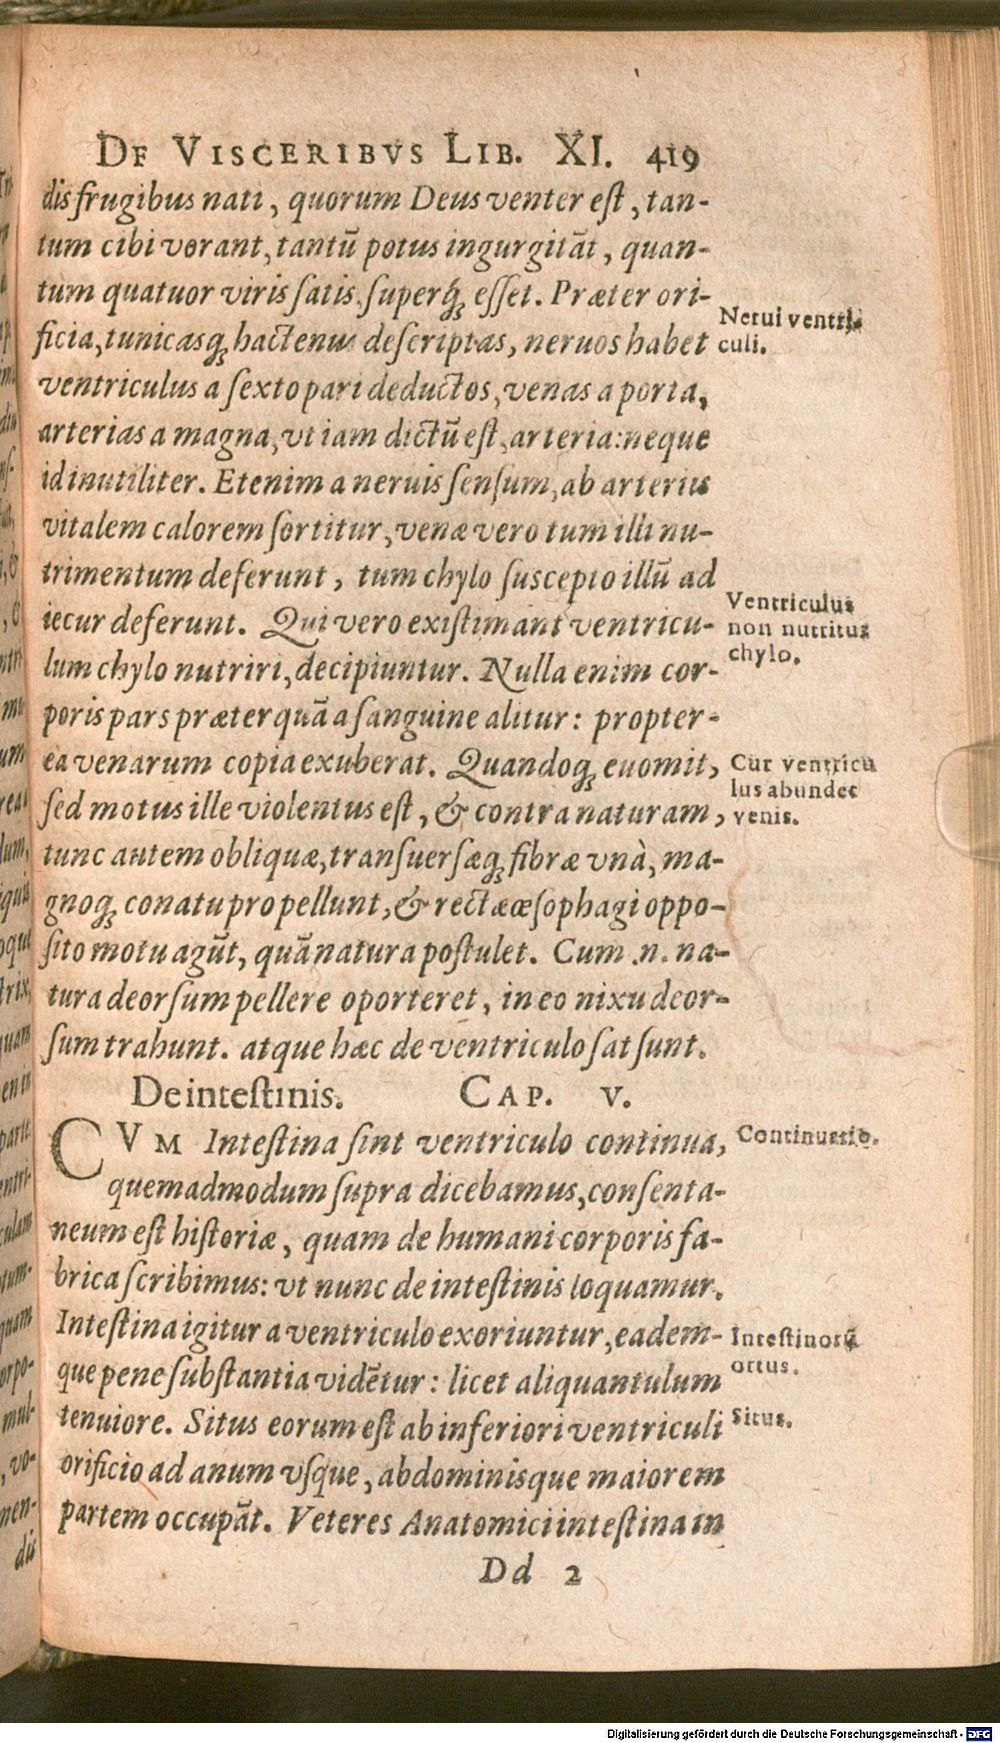 DE VISCERIBVS LIB. XI. 419
dis frugibus nati, quorum Deus venter eſt, tan-
tum cibi vorant, tantū potus ingurgitāt, quan-
tum quatuor viris ſatis ſuperq́ꝫ eſſet. Præter ori-
ficia, tunicasqꝫ hactenus deſcriptas, neruos habet
ventriculus a ſexto pari deductos, venas a porta,
arterias a magna, vt iam dictū eſt, arteria: neque
id inutiliter. Etenim a neruis ſenſum, ab arteriis
vitalem calorem ſortitur, venæ vero tum illi nu-
trimentum deferunt, tum chylo ſuscepto illū ad
iecur deferunt. Qui vero exiſtimant ventricu-
lum chylo nutriri, decipiuntur. Nulla enim cor-
poris pars præterquā a ſanguine alitur: propter-
ea venarum copia exuberat. Quandoqꝫ euomit,
ſed motus ille violentus eſt, & contra naturam,
tunc autem obliquæ, tranſuerſæqꝫ fibræ vnà, ma-
gnoqꝫ conatu propellunt, & rectæ œſophagi oppo-
ſito motu agūt, quā natura poſtulet. Cum .n. na-
tura deorſum pellere oporteret, in eo nixu deor-
ſum trahunt. atque hæc de ventriculo ſat ſunt.
Nerui ventri-
culi.
Ventriculus
non nutritus
chylo.
Cur ventricu
lus abundet
venis.
De inteſtinis. CAP. V.
CVM Inteſtina ſint ventriculo continua,
quemadmodum ſupra dicebamus, conſenta-
neum eſt hiſtoriæ, quam de humani corporis fa-
brica ſcribimus: vt nunc de inteſtinis loquamur.
Inteſtina igitur a ventriculo exoriuntur, eadem-
que pene ſubſtantia vidētur: licet aliquantulum
tenuiore. Situs eorum eſt ab inferiori ventriculi
orificio ad anum vſque, abdominisque maiorem
partem occupāt. Veteres Anatomici inteſtina in
Continuatio.
Inteſtinorū
ortus.
Situs.
Dd 2
Digitalisierung gefördert durch die Deutsche Forschungsgemeinschaft - DFG